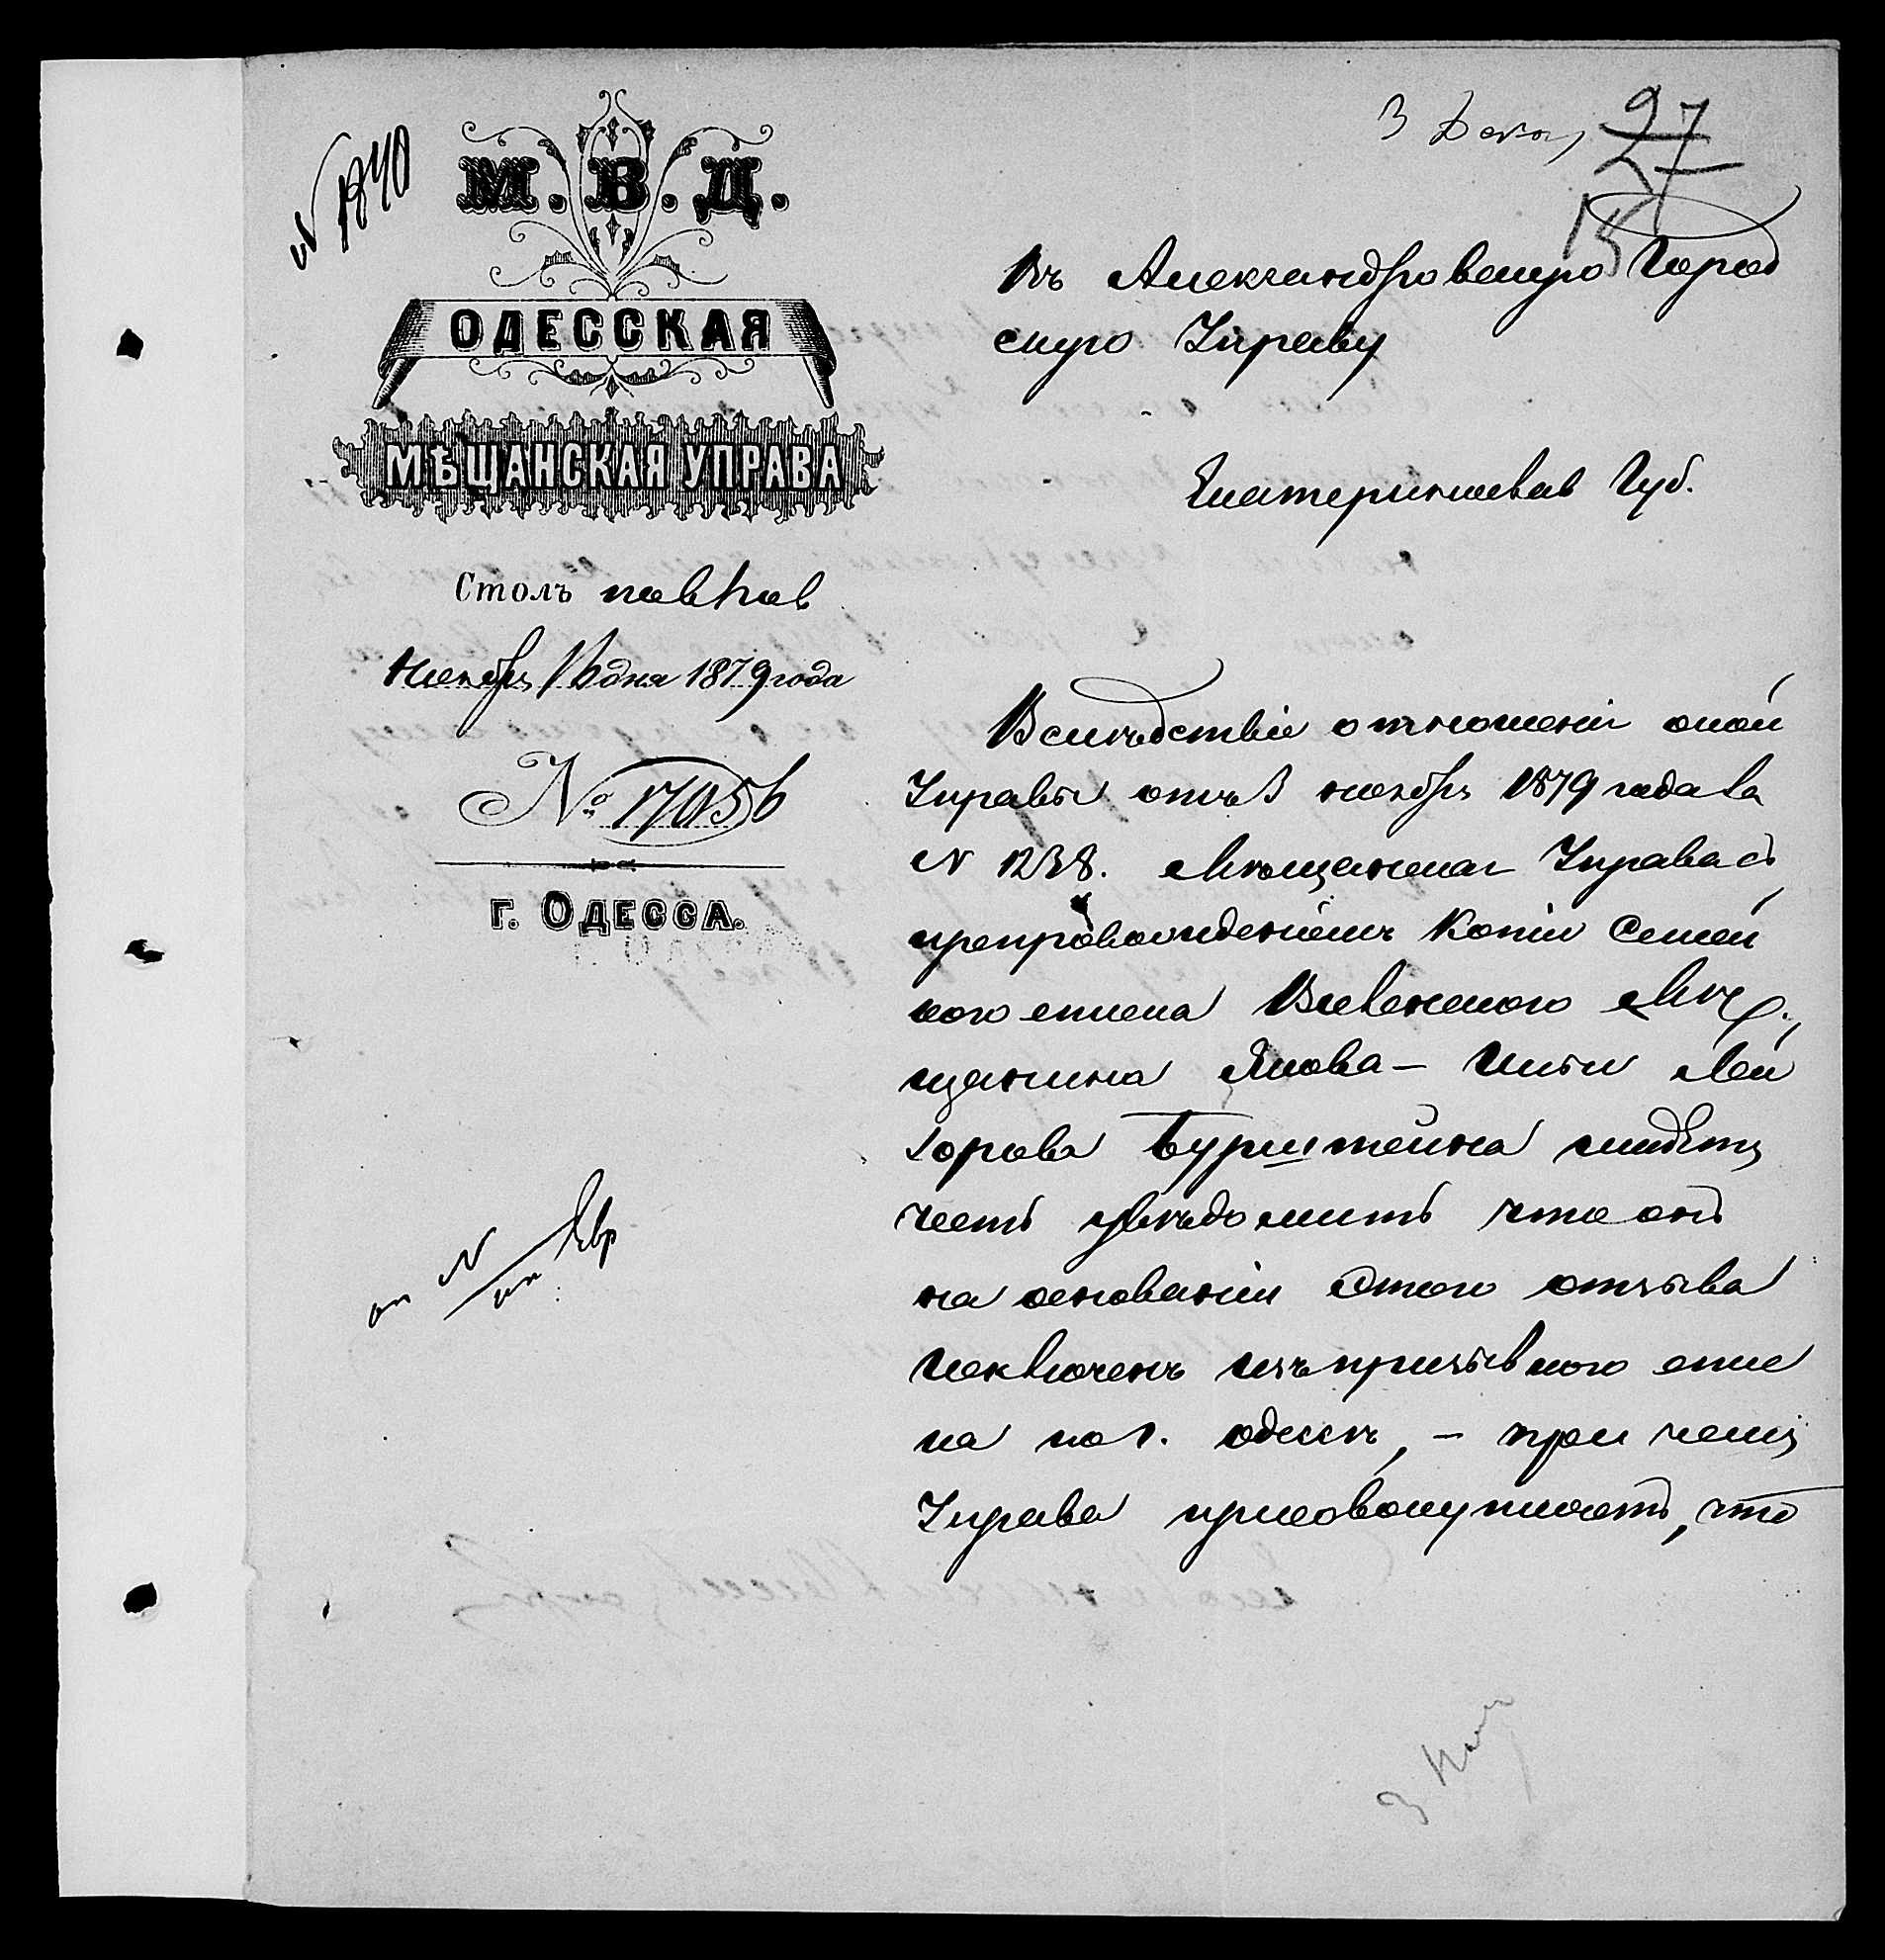 М. В. Д.
ОДЕССКАЯ
МѢЩАНСКАЯ УПРАВА
Столъ
Ноября 16 дня 1879 года
№ 17056
г. ОДЕССА.
3 Дек. 27
Въ Александровскую Город
скую Управу
Екатериносвав Губ.
Вслѣдствіе отношенія оной
Управы отъ 3 ноября 1879 года за
N 1238. Мѣщанская Управа съ
препровожденіемъ Копіи Семей
ного списка Мѣ
щанина Якова – Ицки Лей
зорова Бурштейна имѣетъ
честь увѣдомить что онъ
на основаніи этого отзыва
исключенъ изъ призывного спи
ска по г. Одессѣ, – при чемъ
Управа присовокупляетъ, что